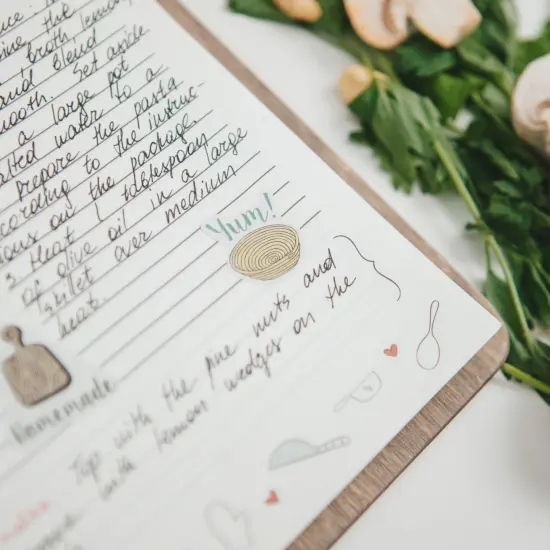 the
broth lemon
and blend
smooth. Set aside
a large pot
salted water to a
Prepare the pasta
according to the instruc
ions on the package.
2 Heat 1 tablespoon
of olive oil in a large
skillet over medium
heat.
Yum!
Homemade
Top with the pine nuts and
with lemon wedges on the